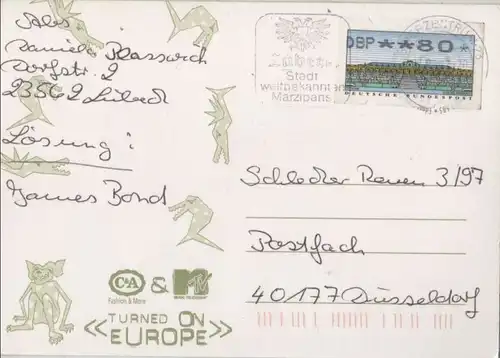 Abs.
Daniela
Dorfstr. 2
23562 Lübeck
Lösung:
James Bond
Lübeck
Stadt
weltbekannten
Marzipans
DBP **80 *
DEUTSCHE BUNDESPOST
Schlecker Raven 3/97
Postfach
40177 Düsseldorf
C&A
Fashion & More
&
MTV
MUSIC TELEVISION
<< TURNED ON
EUROPE >>